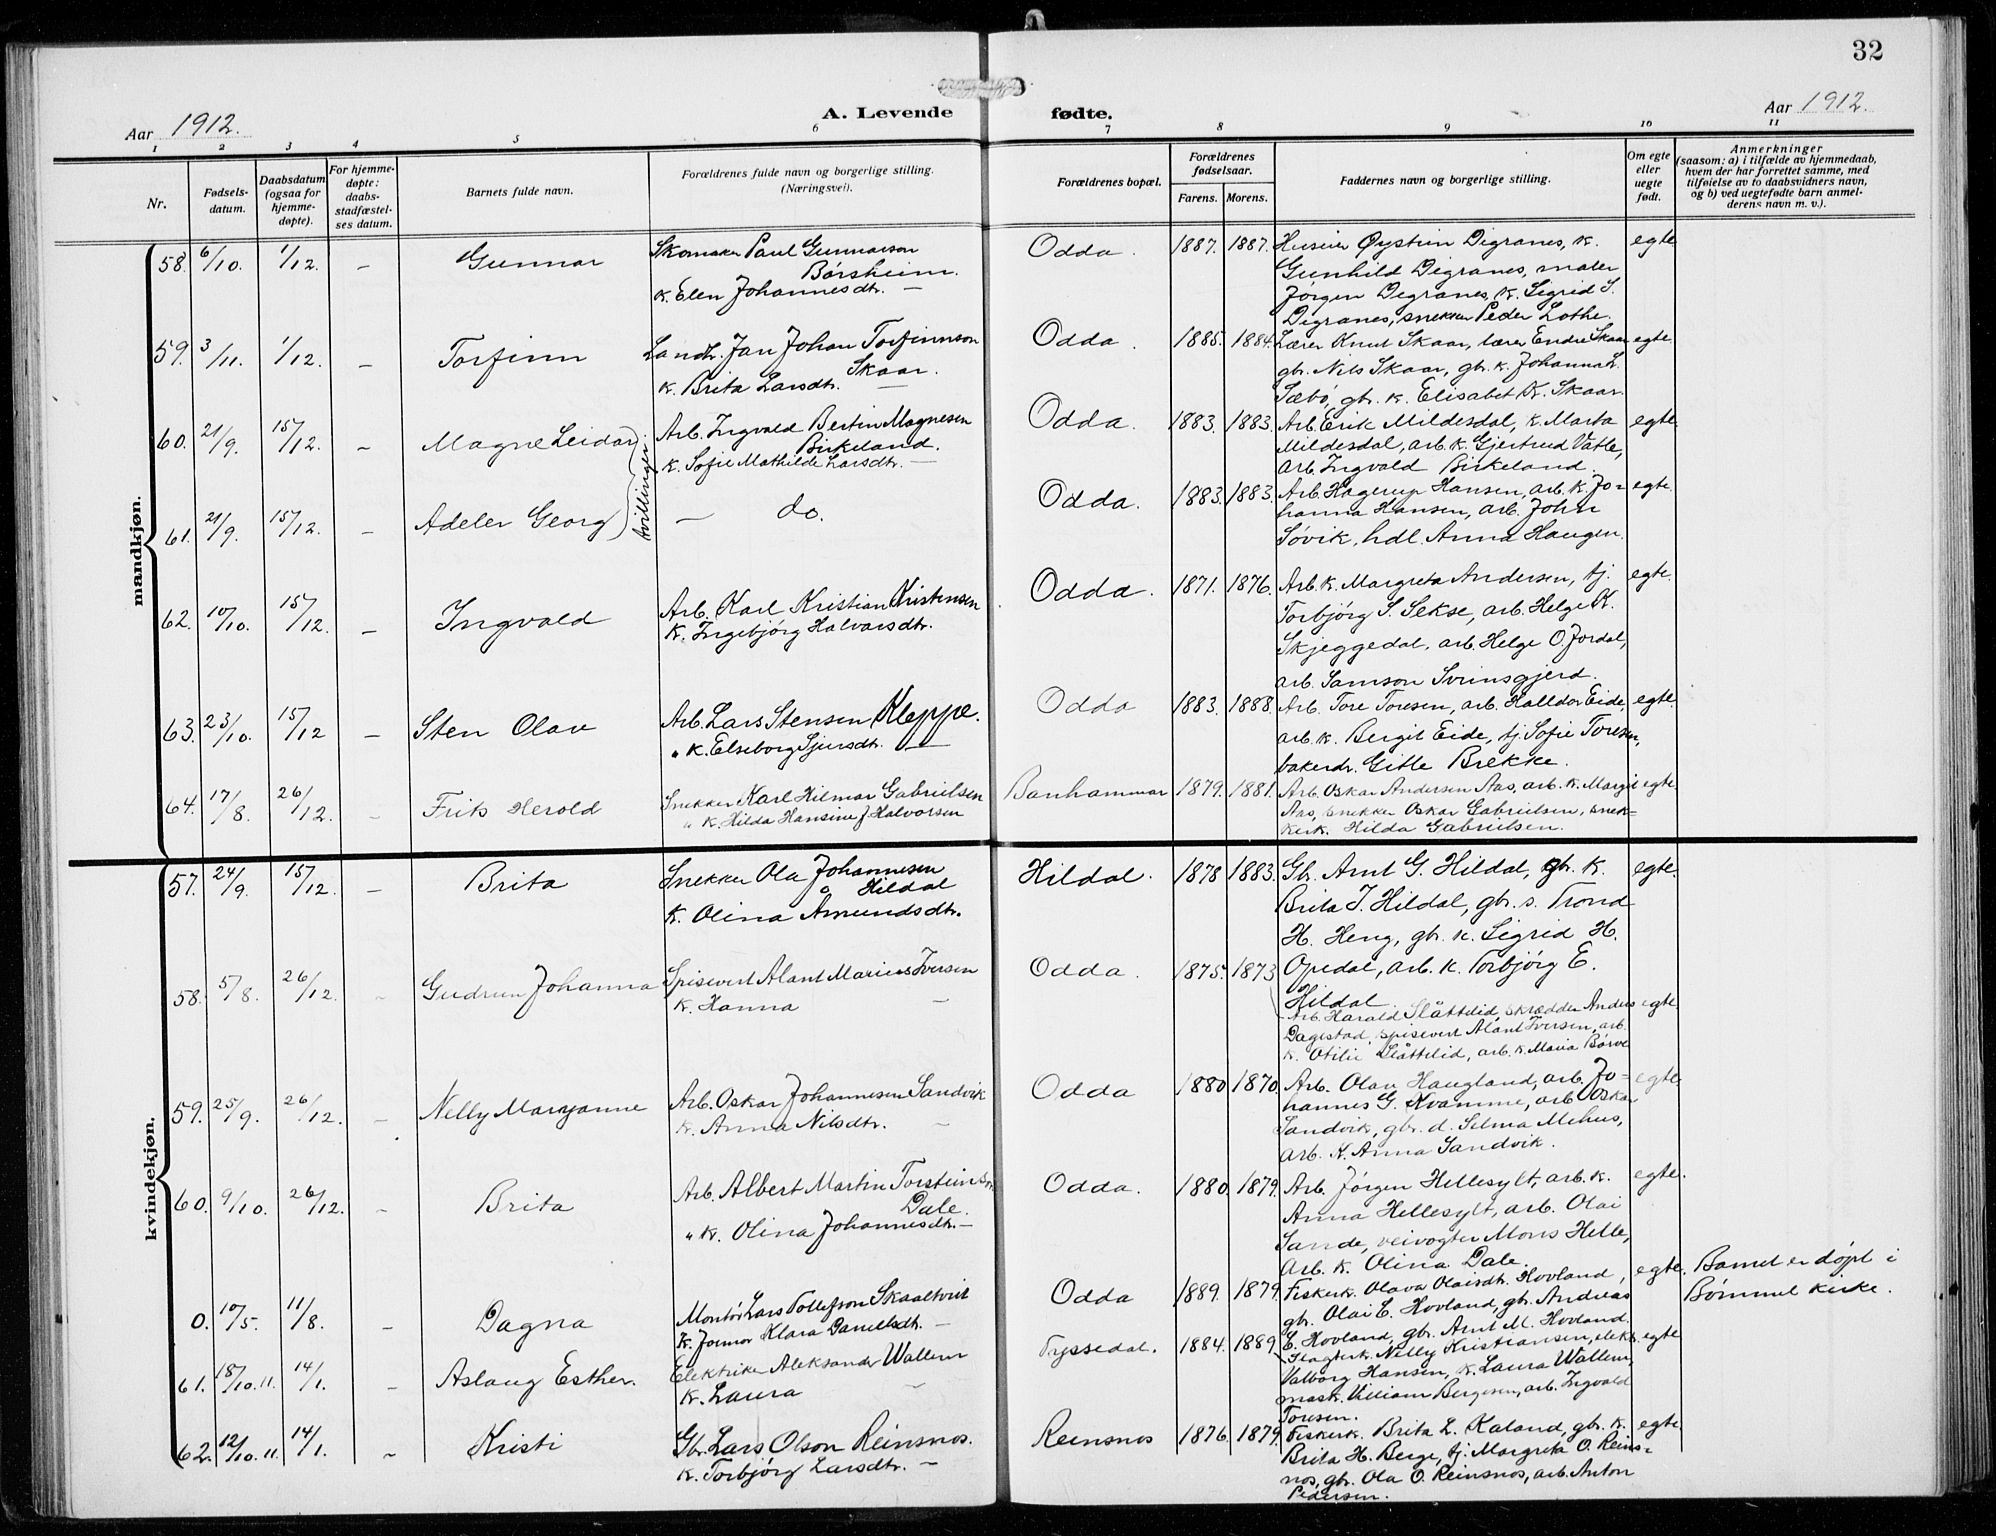 32
Aar 1912.
A. Levende fødte.
Aar 1912.
1 2 3 4 5 6 7 8 9 10 11
Nr.
Fødsels-
datum.
Daabsdatum
(ogsaa for
hjemme-
døpte).
For hjemme-
døpte:
daabs-
stadfæstel-
ses datum.
Barnets fulde navn.
Forældrenes fulde navn og borgerlige stilling.
(Næringsvei).
Forældrenes bopæl.
Forældrenes
fødselsaar.
Farens. Morens.
Faddernes navn og borgerlige stilling.
Om egte
eller
uegte
født.
Anmerkninger
(saasom: a) i tilfælde av hjemmedaab,
hvem der har forrettet samme, med
tilføielse av to daabsvidners navn,
og b) ved uegtefødte barn anmel-
derens navn m. v.).
mandkjøn.
58. 6/10. 1/12. – Gunnar
Skomaker Paul Gunnarson
Børsheim.
k. Elen Johannesdtr. —
Odda. 1887. 1887.
Huseier Øystein Digranes, k.
Gunhild Digranes, maler
Jørgen Digranes, k. Sigrid S.
Digranes, snekker Peder Lothe.
egte
59. 3/11. 1/12. – Torfinn
Landh. Jan Johan Torfinnson
Skaar.
k. Brita Larsdtr. —
Odda. 1885. 1884.
Lærer Knut Skaar, lærer Endre Skaar
gbr. Nils Skaar, gbr. k. Johanna L.
Sæbø, gbr. k. Elisabet K. Skaar.
egte.
60. 21/9. 15/12. – Magne Leidar
tvillinger
Arb. Ingvald Bertin Magnesen
Birkeland.
k. Sofie Mathilde Larsdtr. —
Odda. 1883. 1883.
Arb. Erik Mildesdal, k. Marta
Mildesdal, arb. k. Gjertrud Vatle,
arb. Ingvald Birkeland.
egte.
61. 21/9. 15/12. – Adeler Georg
— do.
Odda. 1883. 1883.
Arb. Hagerup Hansen, arb. k. Jo-
hanna Hansen, arb. John
Søvik, hdl. Anna Haugen.
egte.
62. 10/10. 15/12. – Ingvald
Arb. Karl Kristian Kristensen
k. Ingebjørg Halvarsdtr.
Odda. 1871. 1876.
Arb. k. Margreta Andersen, tj.
Torbjørg S. Sekse, arb. Helge K.
Skjeggedal, arb. Helge O. Jordal,
arb. Samson Svinsgjerd.
egte.
63. 23/10. 15/12 – Sten Olav
Arb. Lars Stensen Kleppe.
" k. Elseborg Sjursdtr. —
Odda 1883. 1888.
Arb. Tore Toresen, arb. Halldor Eide
arb. k. Bergit Eide, tj. Sofie Toresen,
bakerdr. Gitle Brekke.
egte.
64. 17/8. 26/12. – Frits Herold
Snekker Karl Hilmar Gabrielsen
" k. Hilda Hansine f. Halvorsen
Banhammar 1879. 1881.
Arb. Oskar Andersen Aas, arb. k. Margit
Aas, snekker Oskar Gabrielsen, snek-
kerk. Hilda Gabrielsen.
egte.
kvindekjøn.
57. 24/9. 15/12. – Brita
Snekker Ola Johannesen
Hildal
k. Olina Amundsdtr.
Hildal. 1878 1883.
Gb. Arnt G. Hildal, gbr. k.
Brita J. Hildal, gbr. s. Trond
H. Heng, gbr. k. Sigrid H.
Opedal, arb. k. Torbjørg E.
Hildal.
egte.
58. 5/8. 26/12. – Gudrun Johanna
Spisevert Alant Marius Iversen
k. Hanna —
Odda. 1875. 1873
Arb. Harald Slåttelid, skrædder Anders
Dagestad, spisevert Alant Iversen, arb.
k. Otilie Slåttelid, arb. k. Maria Børve
egte.
59. 25/9. 26/12. – Nelly Maryanne
Arb. Oskar Johannesen Sandvik
k. Anna Nilsdtr. —
Odda 1880 1870.
Arb. Olav Haugland, arb. Jo-
hannes G. Kvamme, arb. Oskar
Sandvik, gbr. d. Selma Mehus,
arb. k. Anna Sandvik.
egte.
60. 9/10. 26/12. – Brita
Arb. Albert Martin Torsteinson
Dale.
" k. Olina Johannesdtr. —
Odda. 1880. 1879.
Arb. Jørgen Hellesylt, arb. k.
Anna Hellesylt, arb. Olai
Sande, veivogter Mons Helle,
arb. k. Olina Dale.
egte.
0. 10/5. 11/8. – Dagna
Montør Lars Tollefson Skaaltveit
k. Klara Danielsdtr. —
Odda 1889. 1879.
Fiskerk. Olava Olaisdtr. Hovland,
gbr. Olai E. Hovland, gbr. Andreas
E. Hovland, gbr. Arnt M. Hovland.
egte.
Barnet er døpt i
Bømmel kirke.
61. 18/10. 11. 14/1. – Aslaug Esther.
Elektriker Aleksander Wallem
k. Laura —
Tyssedal. 1884. 1889
Slagterk. Nelly Kristiansen, elekt.
Valborg Hansen, k. Laura Wallem,
mask. William Bergesen, arb. Ingvald
Toresen.
egte
62. 12/10. 11. 14/1. – Kristi
Gbr. Lars Olson Reinsnos.
k. Torbjørg Larsdtr. —
Reinsnos 1876. 1879.
Fiskerk. Brita L. Kaland, gbr. k.
Brita H. Berge, tj. Margreta O. Reins-
nos, gbr. Ola O. Reinsnos, arb. Anton
Pedersen.
egte.